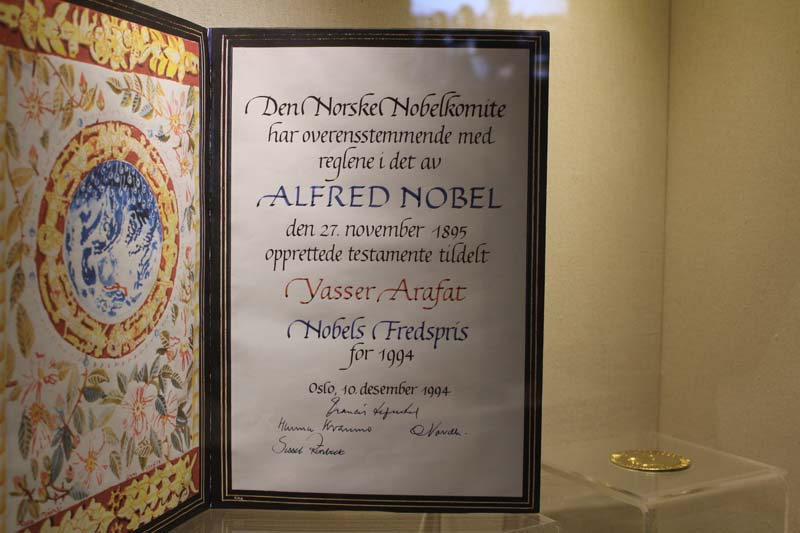 Den Norske Nobelkomite
har overensstemmende med
reglene i det av
ALFRED NOBEL
den 27. november 1895
opprettede testamente tildelt
Yasser Arafat
Nobels Fredspris
for 1994
Oslo, 10. desember 1994
Francis Sejersted
Hanna Kvanmo
Sissel Rønbeck